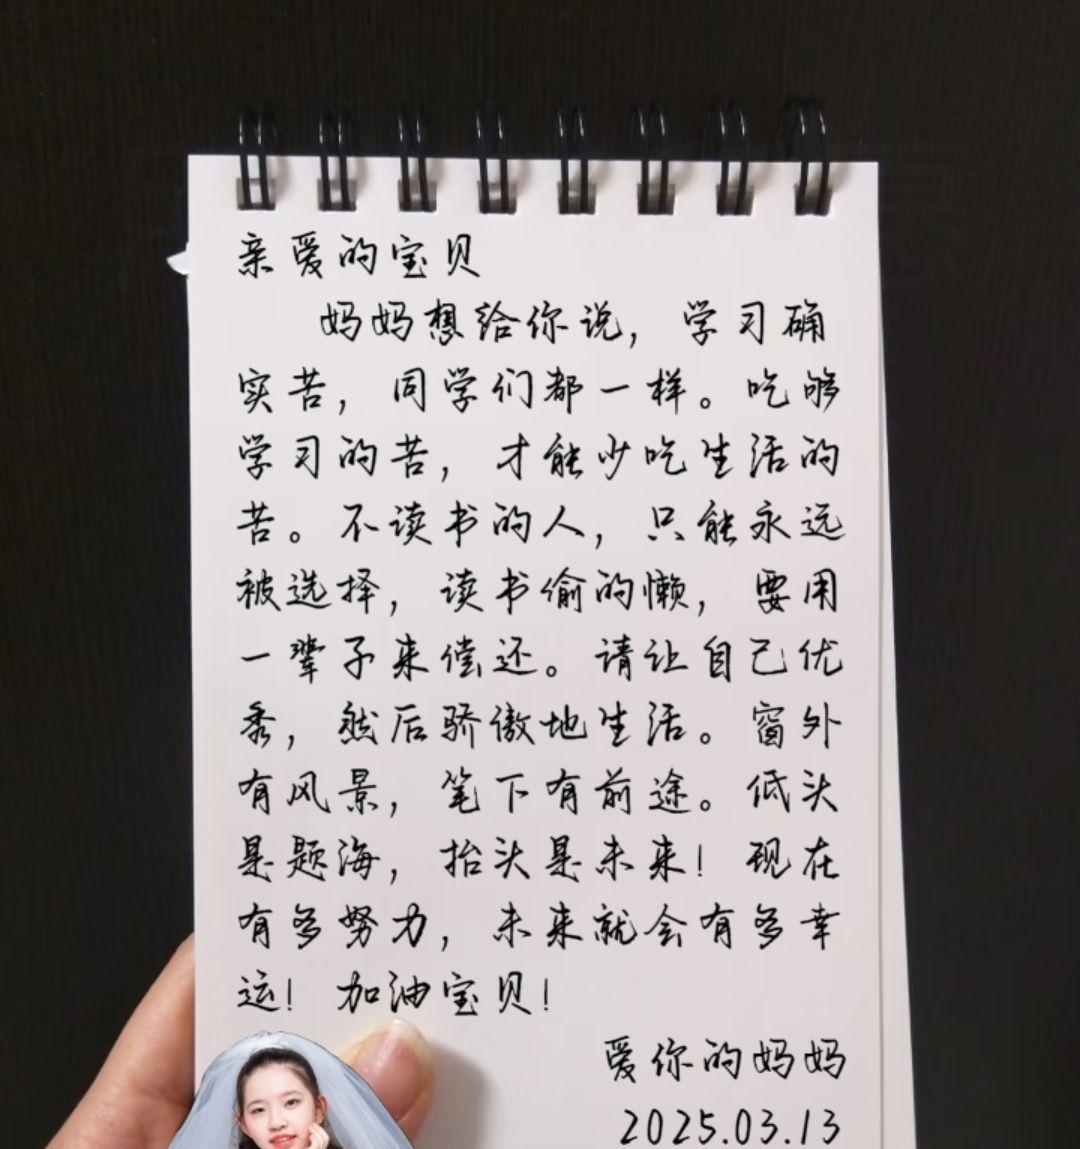 亲爱的宝贝
妈妈想给你说，学习确
实苦，同学们都一样。吃够
学习的苦，才能少吃生活的
苦。不读书的人，只能永远
被选择，读书偷的懒，要用
一辈子来偿还。请让自己优
秀，然后骄傲地生活。窗外
有风景，笔下有前途。低头
是题海，抬头是未来！现在
有多努力，未来就会有多幸
运！加油宝贝！
爱你的妈妈
2025.03.13